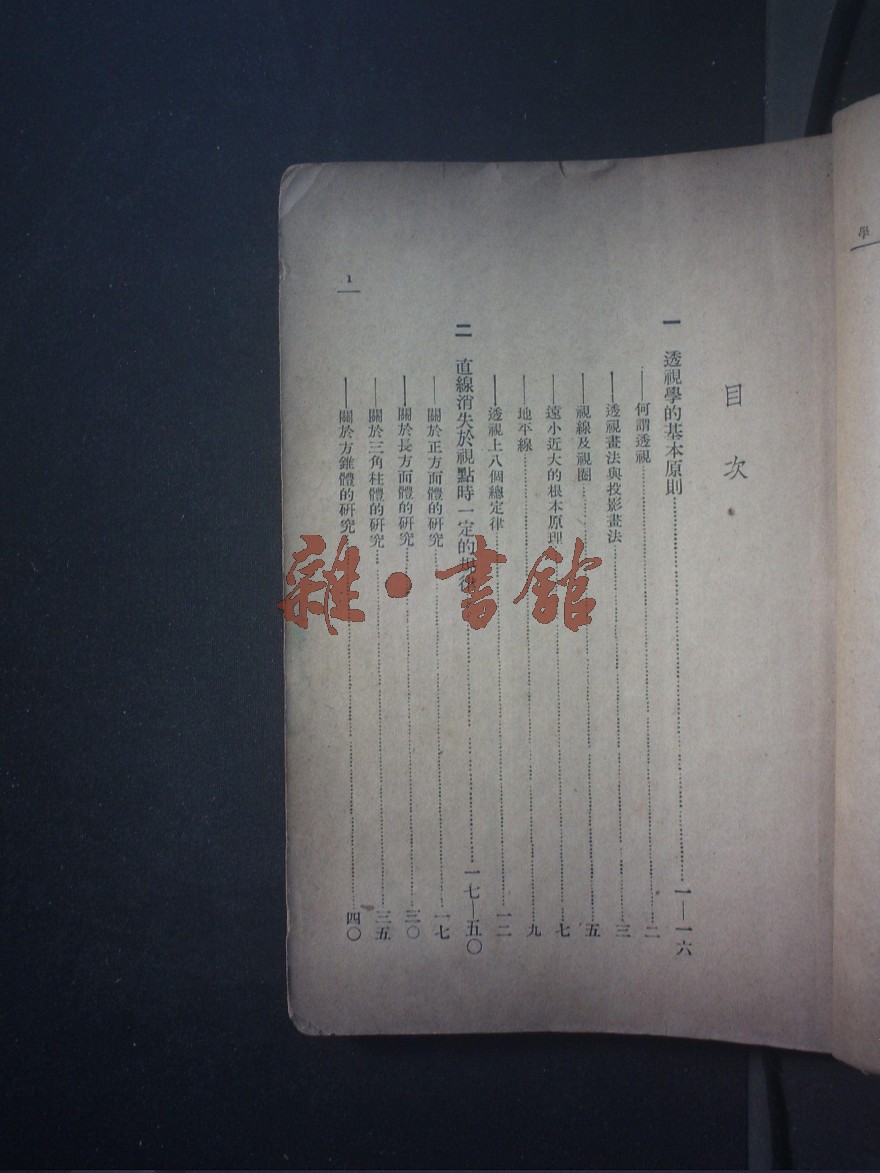 學
目次
一 透視學的基本原則……一—一六
——何謂透視……二
——透視畫法與投影畫法……三
——視線及視圈……五
——遠小近大的根本原理……七
——地平線……九
——透視上八個總定律……一二
二 直線消失於視點時一定的……一七—五〇
——關於正方面體的研究……一七
——關於長方面體的研究……三〇
——關於三角柱體的研究……三五
——關於方錐體的研究……四〇
1
雜·書館